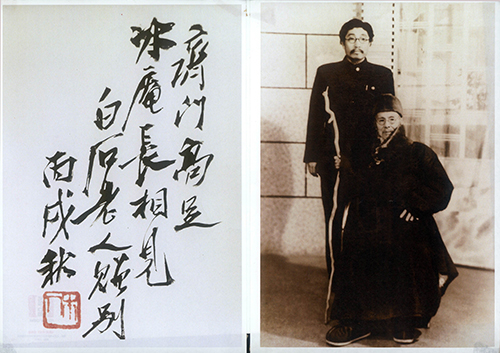 齊門高足
冰庵長相見
白石老人贈別
丙戌秋